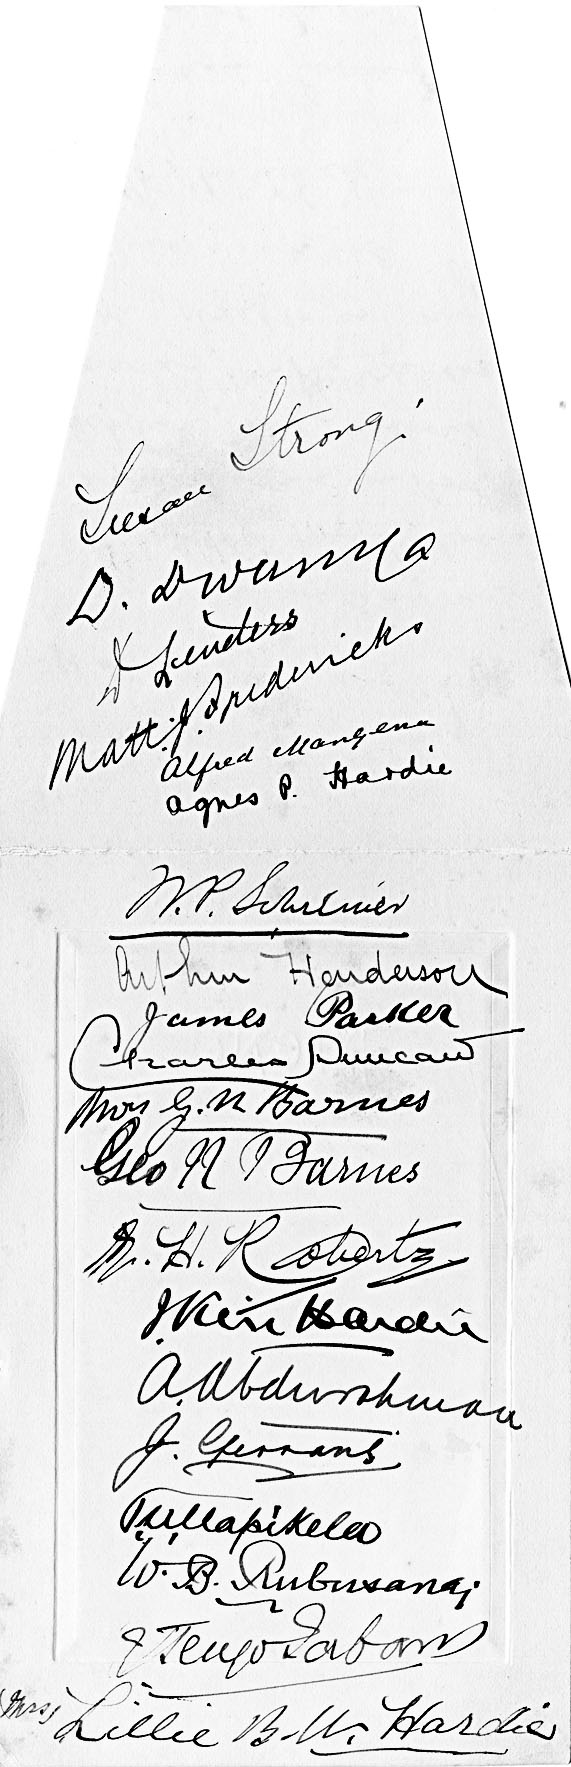 Susan Strong.
D. Dwanya
D Lenders
Matt. J. Fredericks
Alfred Mangena
Agnes P. Hardie
W. P. Schreiner
Arthur Henderson
James Parker
Charles Duncan
Mrs G. N Barnes
Geo N Barnes
G. H. Roberts
J Keir Hardie
A. Abdurahman
J. Gerrans
T. M. Mapikela
W. B. Rubusana;
J Tengo Jabavu
(Mrs) Lillie B. W. Hardie